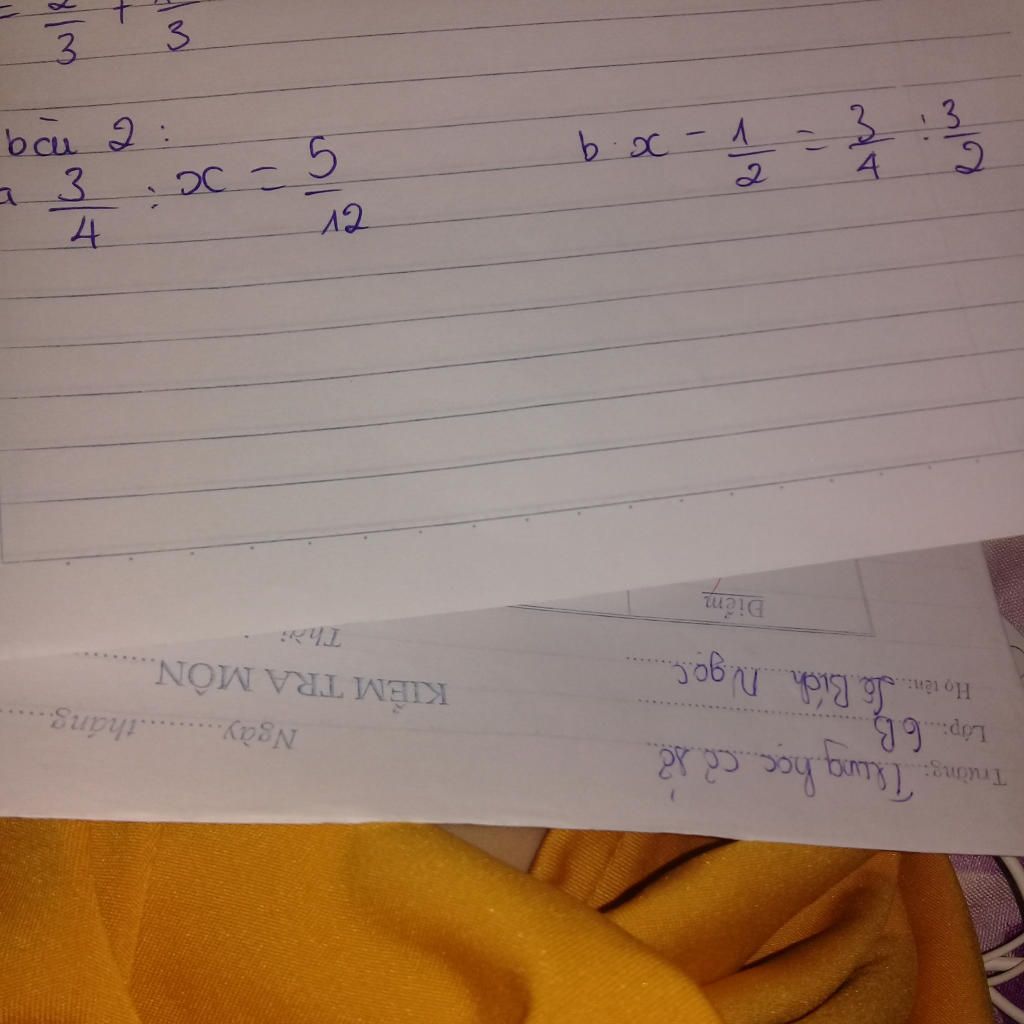 = 2/3 + /3
bài 2:
a 3/4 : x = 5/12
b. x - 1/2 = 3/4 : 3/2
Điểm
Thời
KIỂM TRA MÔN..........
Ngày..........tháng..........
Họ tên: Lê Bích Ngọc
Lớp: 6B
Trường: Trung học cơ sở